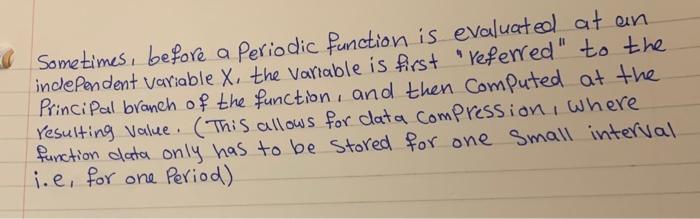 Sometimes, before a Periodic function is evaluated at an
independent variable X, the variable is first "referred" to the
Principal branch of the function, and then Computed at the
resulting value. (This allows for data compression, where
function data only has to be stored for one small interval
i.e, for one Period)